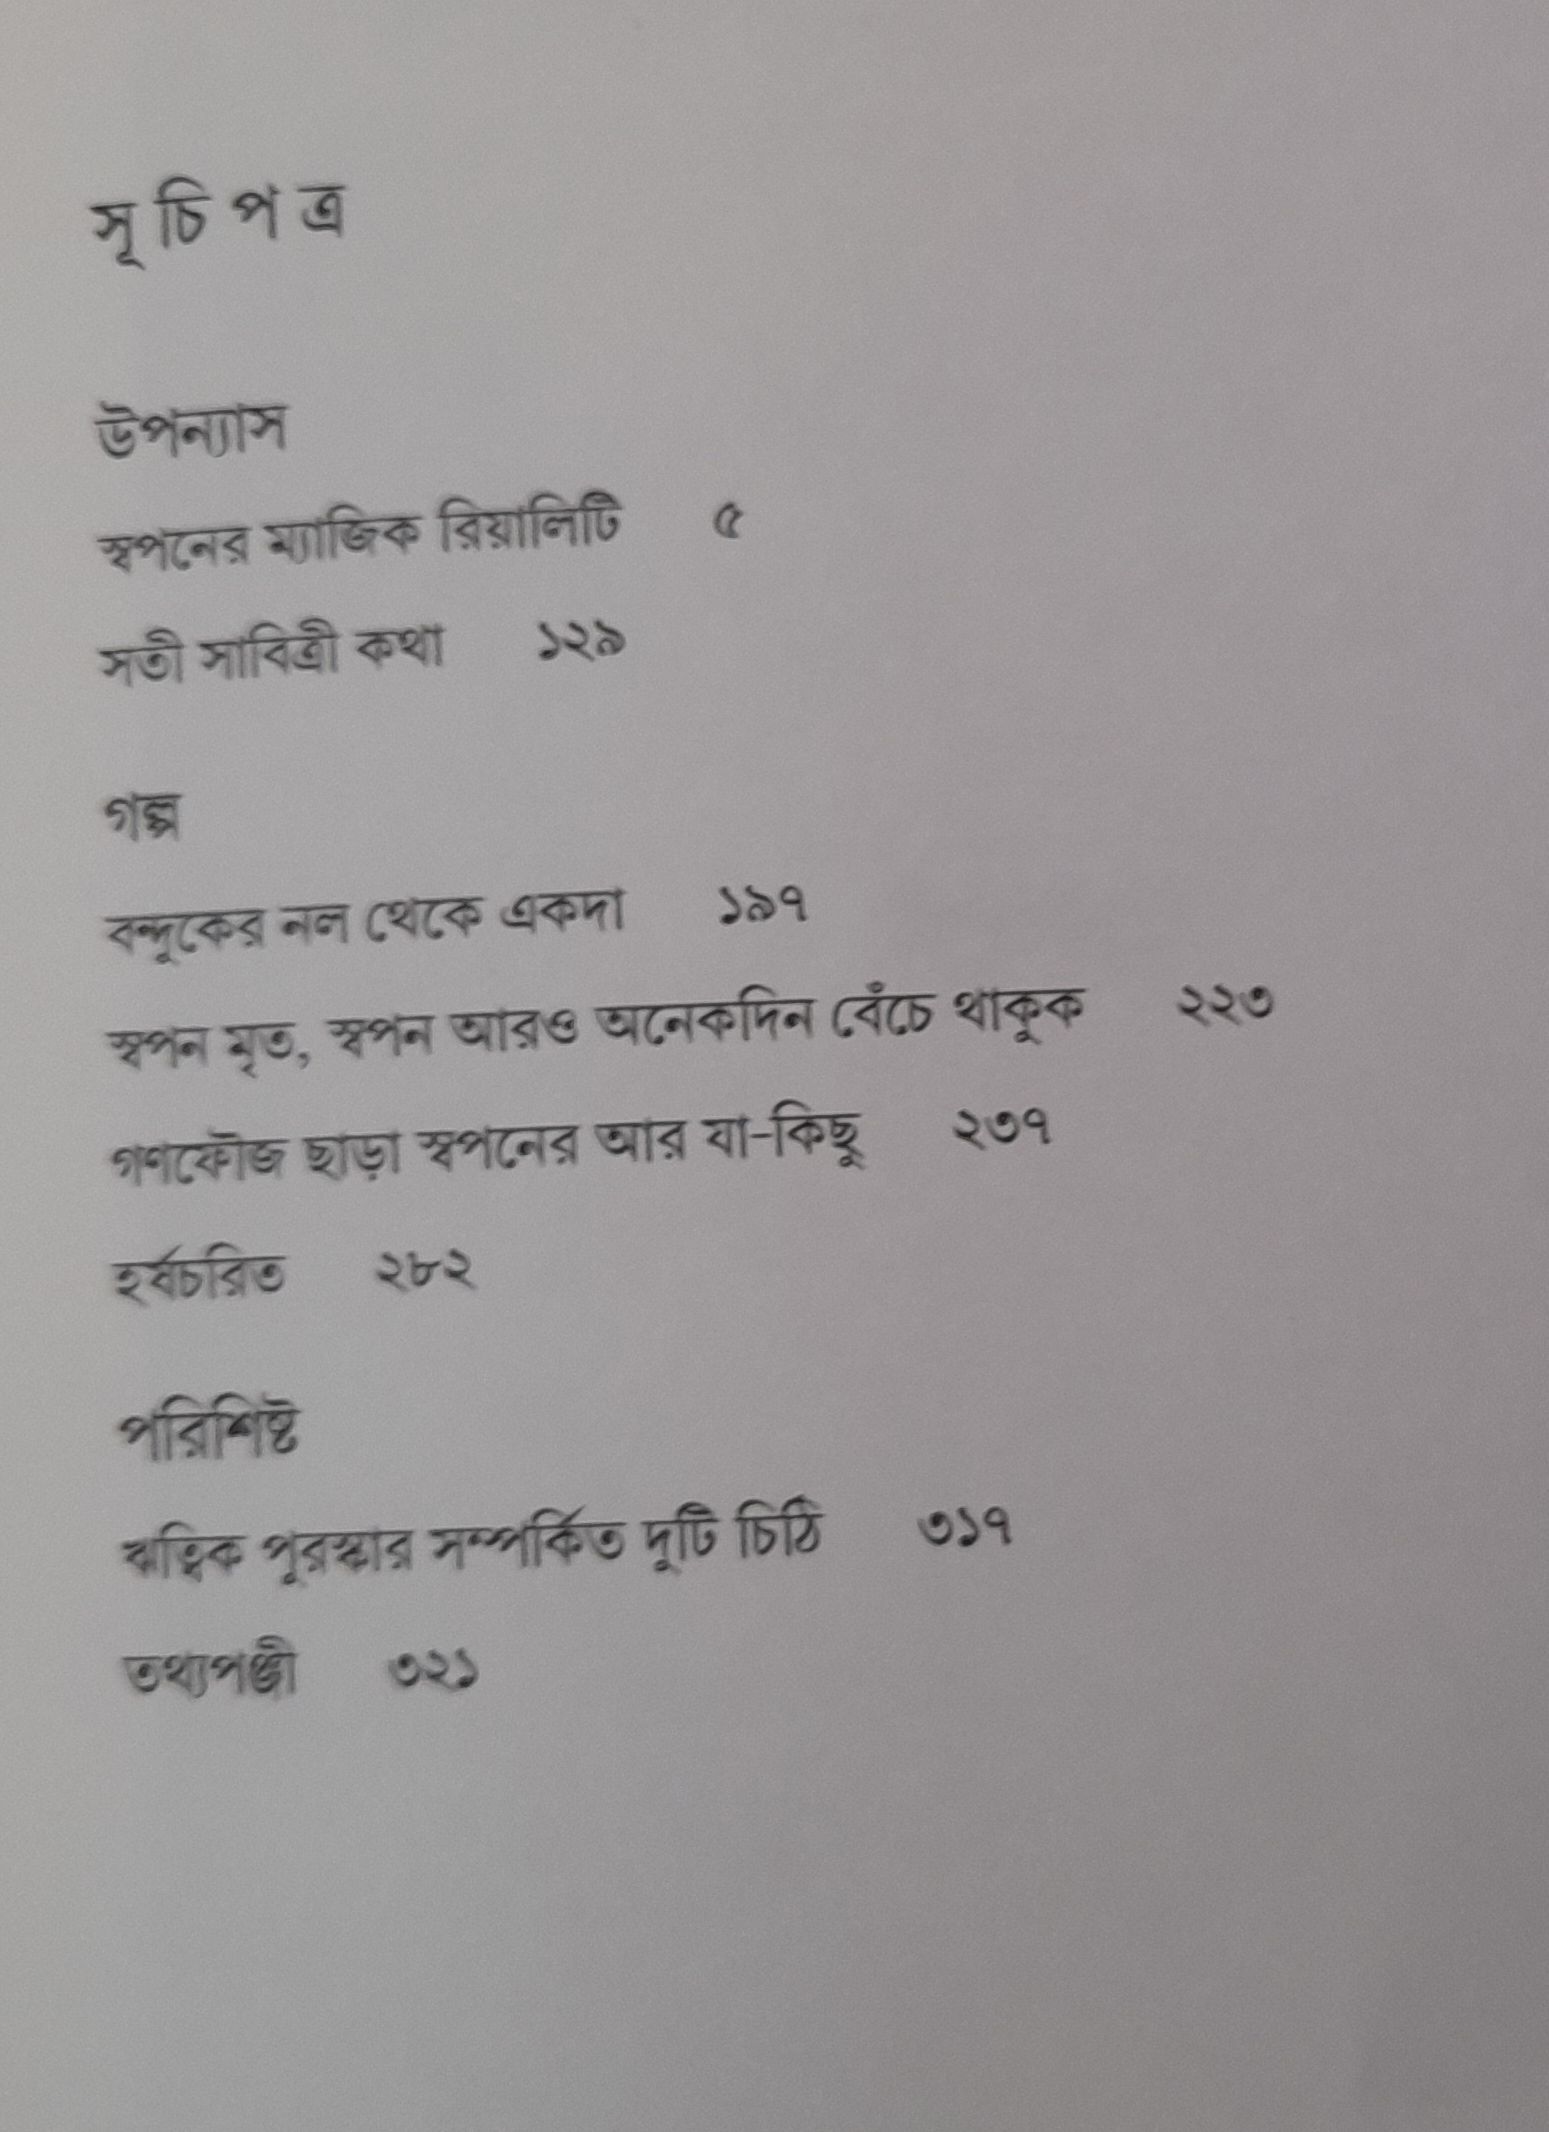 সূ চি প ত্র
উপন্যাস
স্বপনের ম্যাজিক রিয়ালিটি ৫
সতী সাবিত্রী কথা ১২৯
গল্প
বন্দুকের নল থেকে একদা ১৯৭
স্বপন মৃত, স্বপন আরও অনেকদিন বেঁচে থাকুক ২২৩
গণফৌজ ছাড়া স্বপনের আর যা-কিছু ২৩৭
হর্ষচরিত ২৮২
পরিশিষ্ট
ঋত্বিক পুরস্কার সম্পর্কিত দুটি চিঠি ৩১৭
তথ্যপঞ্জী ৩২১